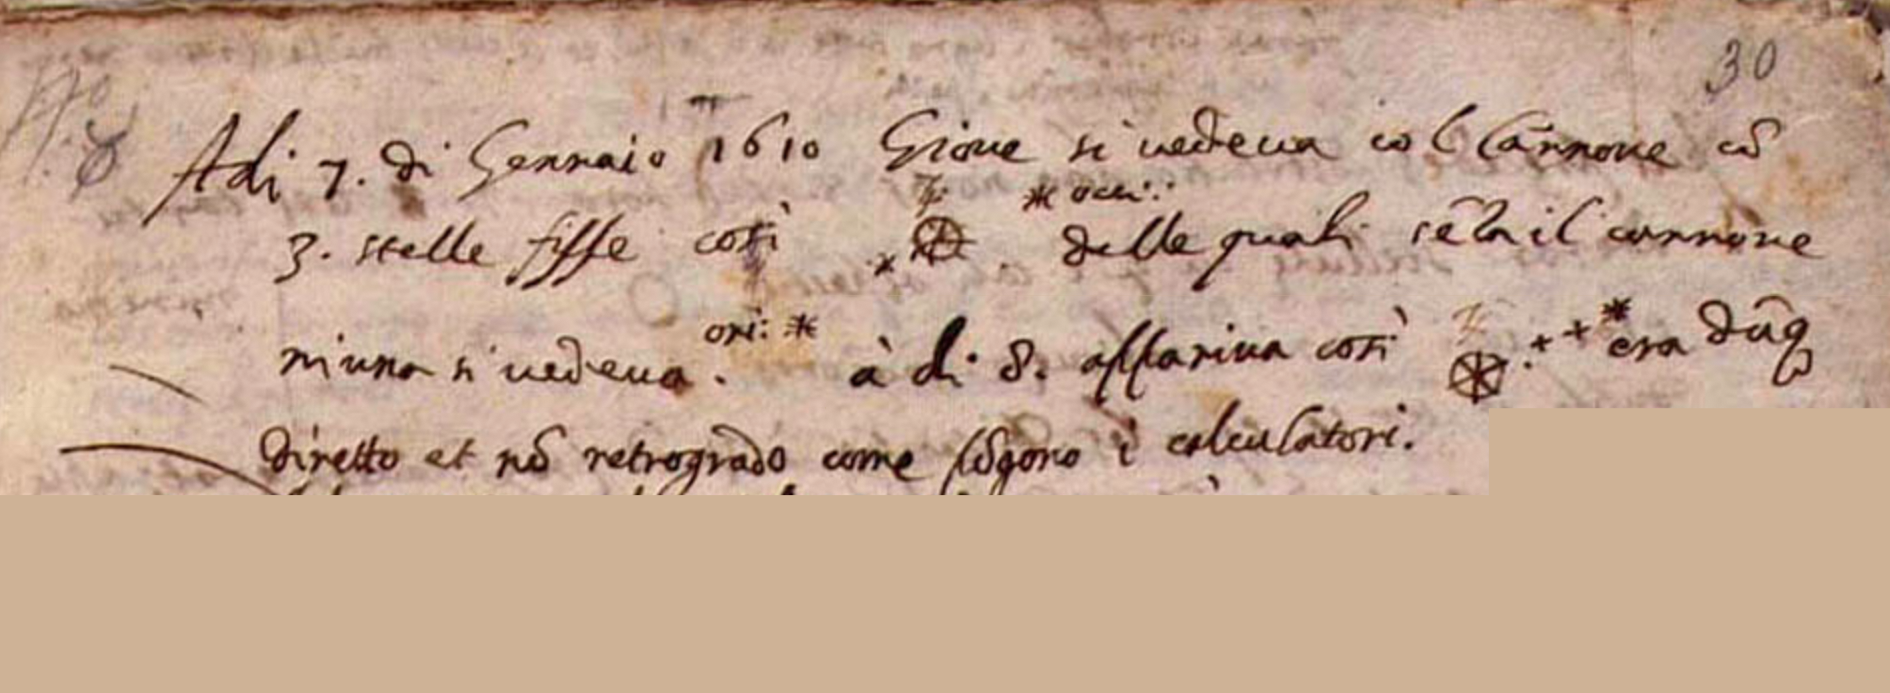 30
Adi 7. di Gennaio 1610 Giove si vedeva col Cannone cō
3. stelle fisse così delle quali sēza il cannone
* occi:
niuna si vedeva. à dì 8. appariva così era dūq
ori: *
diretto et nō retrogrado come pōgono i calculatori.